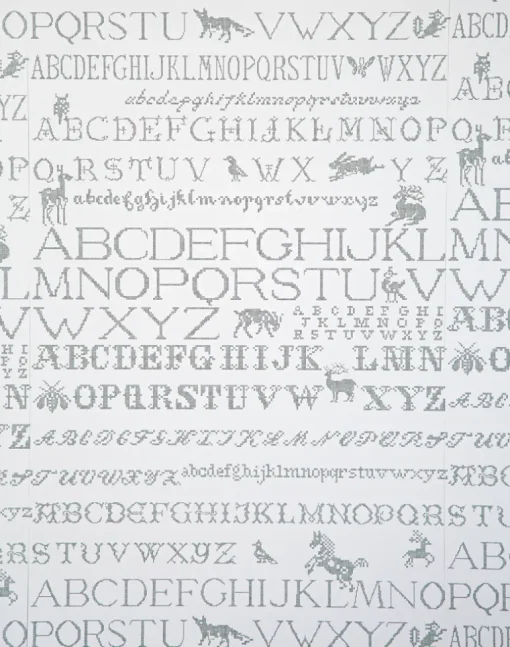 OPQRSTU VWXYZ ABCD
ABCDEFGHIJKLMNOPQRSTUV WXYZ
abcdefghijklmnopqrstuvwxyz
YZ ABCDEFGHIJKLMNOPQ
PQRSTUV WX YZ
Z abcdefghijklmnopqrstuvwxyz
ABCDEFGHIJKLMN
LMNOPQRSTU VW
VWXYZ
ABCDEFGHI
JKLMNOPQ
RSTUVWXYZ
ABCDEFGHIJK LMN O
N OPQRSTUVW XYZ
Z ABCDEFGHIJKLMNOPQRSTUV
STUVWXYZ abcdefghijklmnopqrstuvwxyz ABC
xyz ABCDEFGHIJKLMNOPQRST
RSTUVWXYZ AB
ABCDEFGHIJKLMNOPQR
OPQRSTU VWXYZ ABCD